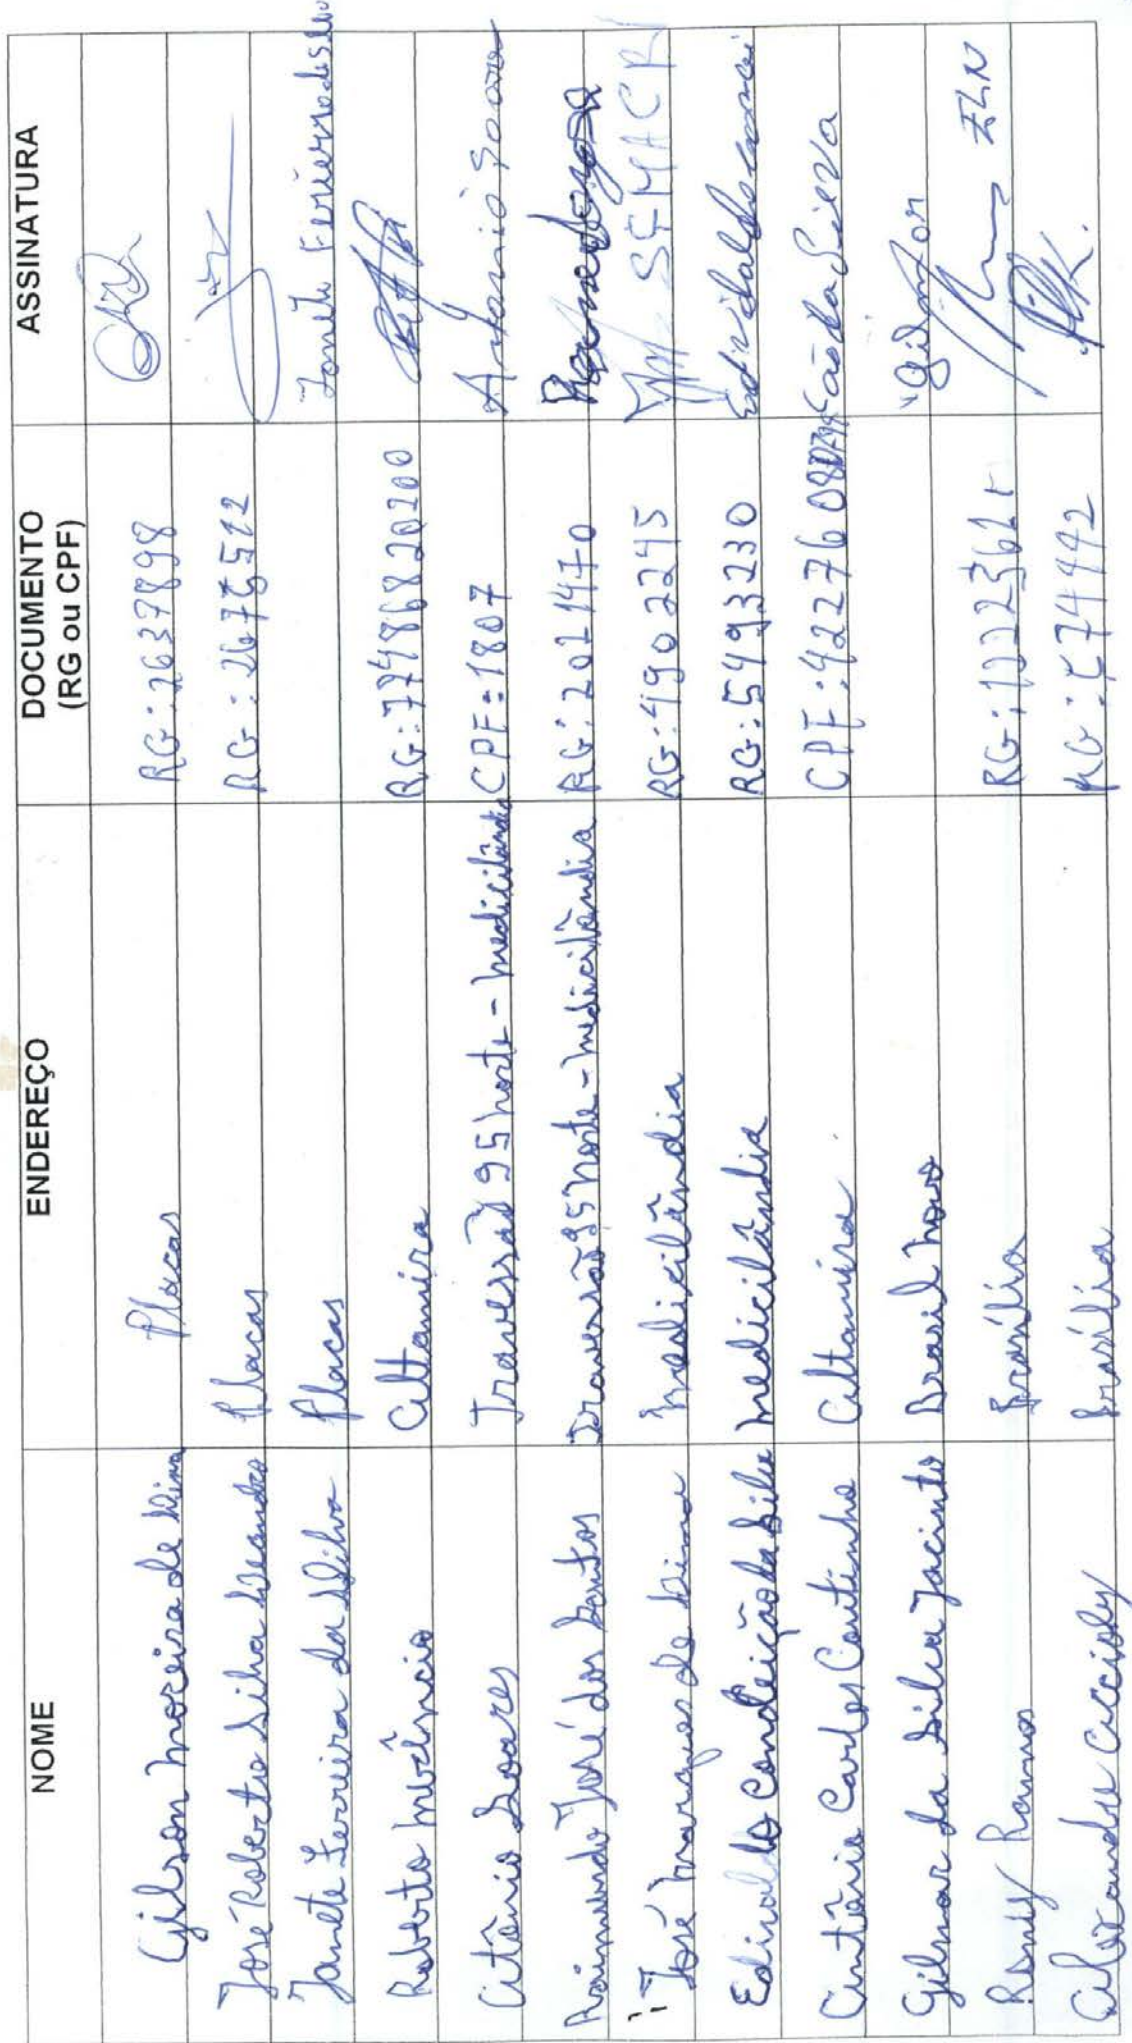 NOME ENDEREÇO DOCUMENTO (RG ou CPF) ASSINATURA
Gilson Moreira de Lima Placas RG: 2637898
José Roberto Silva Leandro Placas RG: 2675512
Janete Ferreira da Silva Placas Janete Ferreira da Silva
Roberto Inocêncio Altamira RG: 77486820200
Antônio Soares Travessão 95 Norte - Medicilândia CPF: 1807 Antonio Soares
Raimundo José dos Santos Travessão 95 Norte - Medicilândia RG: 2021470
José Marques de Lima Medicilândia RG: 4902295 SEMACR
Edinaldo Conceição da Silva Medicilândia RG: 5493230
Antônio Carlos Coutinho Altamira
Gilmar da Silva Jacinto Brasil Novo
Ramos Brasília RG:
Alexandre Accioly Brasília RG: